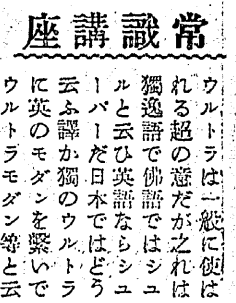 常識講座
ウルトラは一般に使は
れる超の意だが之れは
獨逸語で佛語ではシユ
ルと云ひ英語ならシユ
ーパーだ日本ではどう
云ふ譯か獨のウルトラ
に英のモダンを繋いで
ウルトラモダン等と云